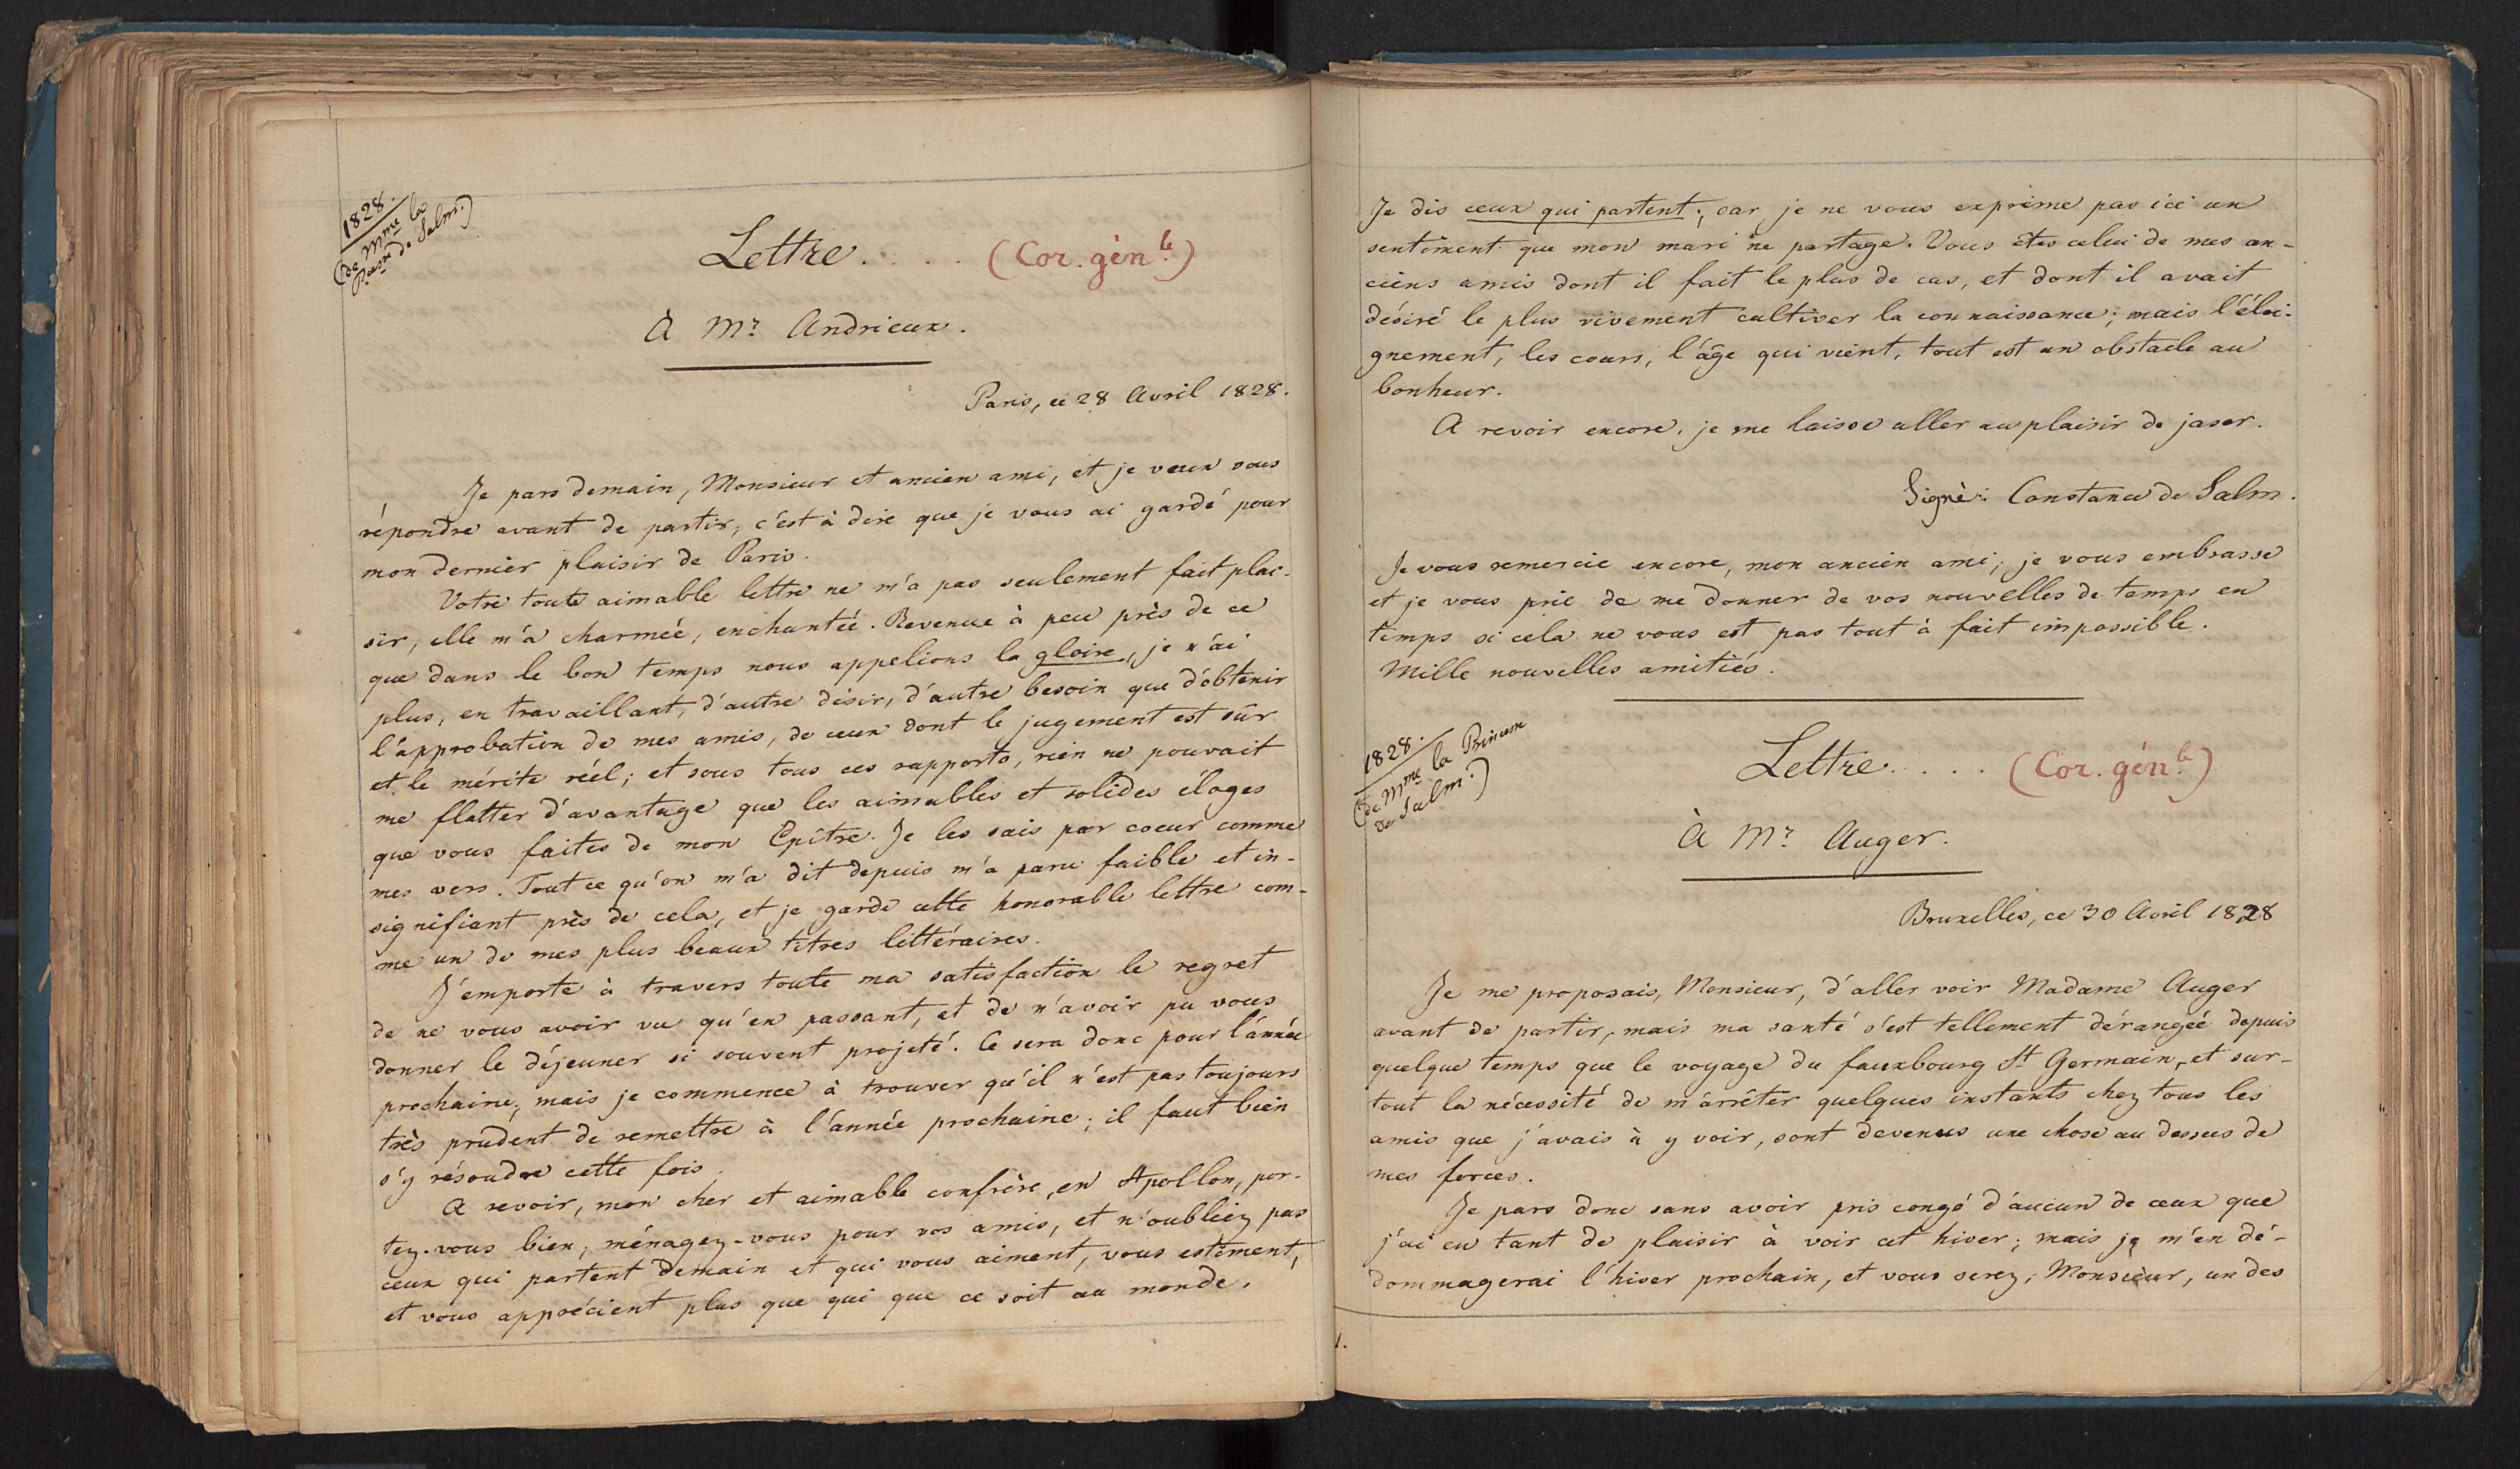 1828.
(de Mme la
Pcesse de Salm.)
Lettre. . . . (Cor. génle.)
À Mr. Andrieux.
Paris, ce 28 Avril 1828.
Je pars demain, Monsieur et ancien ami, et je veux vous
répondre avant de partir, c'est à dire que je vous ai gardé pour
mon dernier plaisir de Paris.
Votre toute aimable lettre ne m'a pas seulement fait plai-
sir, elle m'a charmée, enchantée. Revenue à peu près de ce
que dans le bon temps nous appelions la gloire, je n'ai
plus, en travaillant, d'autre désir, d'autre besoin que d'obtenir
l'approbation de mes amis, de ceux dont le jugement est sûr
et le mérite réel; et sous tous ces rapports, rien ne pouvait
me flatter d'avantage que les aimables et solides éloges
que vous faites de mon Epître. Je les sais par coeur comme
mes vers. Tout ce qu'on m'a dit depuis m'a paru faible et in-
signifiant près de cela, et je garde cette honorable lettre com-
me un de mes plus beaux titres littéraires.
J'emporte à travers toute ma satisfaction le regret
de ne vous avoir vu qu'en passant, et de n'avoir pu vous
donner le déjeuner si souvent projeté. Ce sera donc pour l'année
prochaine; mais je commence à trouver qu'il n'est pas toujours
très prudent de remettre à l'année prochaine; il faut bien
s'y résoudre cette fois.
A revoir, mon cher et aimable confrère, en Apollon, por-
tez-vous bien, ménagez-vous pour vos amis, et n'oubliez pas
ceux qui partent demain et qui vous aiment, vous estiment,
et vous apprécient plus que qui que ce soit au monde.
Je dis ceux qui partent; car je ne vous exprime pas ici un
sentiment que mon mari ne partage. Vous êtes celui de mes an-
ciens amis dont il fait le plus de cas, et dont il avait
désiré le plus vivement cultiver la connaissance; mais l'éloi-
gnement, les cours, l'âge qui vient, tout est un obstacle au
bonheur.
A revoir encore. je me laisse aller au plaisir de jaser.
Signé: Constance de Salm.
Je vous remercie encore, mon ancien ami; je vous embrasse
et je vous prie de me donner de vos nouvelles de temps en
temps si cela ne vous est pas tout à fait impossible.
Mille nouvelles amitiés.
1828.
(de Mme la Princesse
de Salm.)
Lettre. . . . (Cor. génle.)
À Mr. Auger.
Bruxelles, ce 30 Avril 1828
Je me proposais, Monsieur, d'aller voir Madame Auger
avant de partir, mais ma santé s'est tellement dérangée depuis
quelque temps que le voyage du fauxbourg St Germain, et sur-
tout la nécessité de m'arrêter quelques instants chez tous les
amis que j'avais à y voir, sont devenus une chose au dessus de
mes forces.
Je pars donc sans avoir pris congé d'aucun de ceux que
j'ai eu tant de plaisir à voir cet hiver; mais je m'en dé-
dommagerai l'hiver prochain, et vous serez, Monsieur, un des